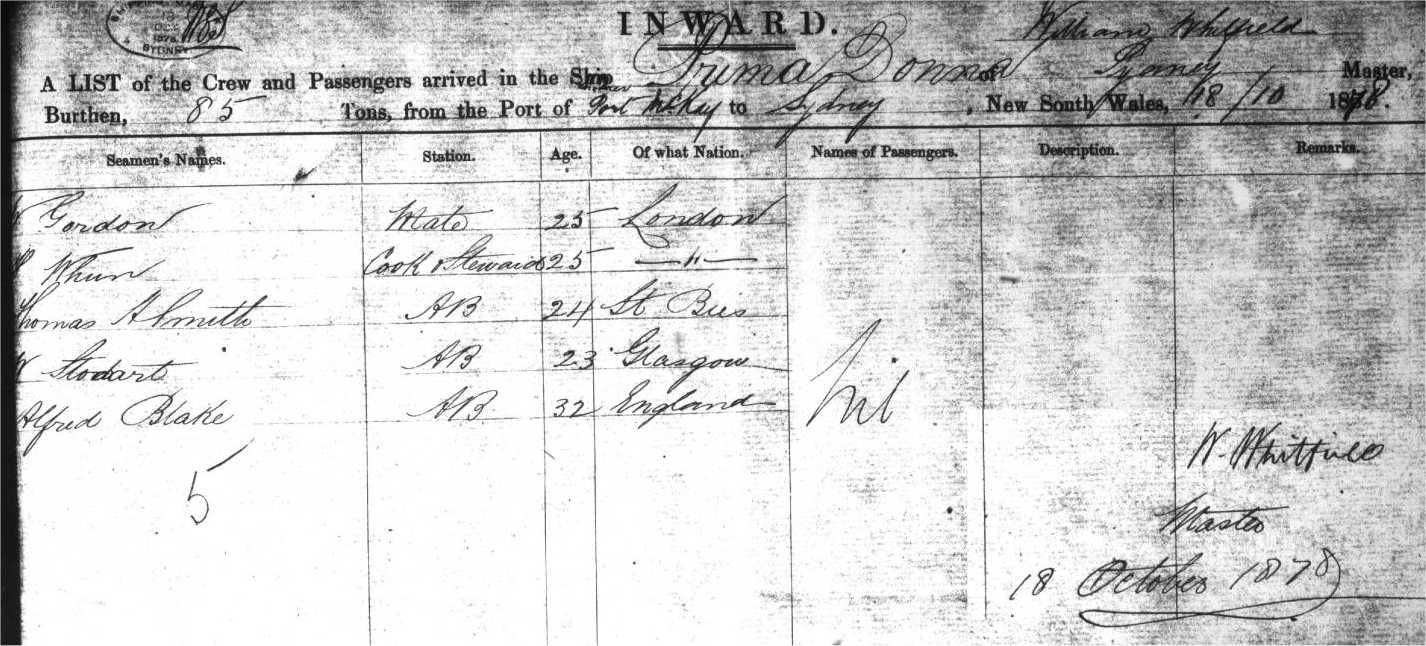 SYDNEY
INWARD.
William Whitfield
A LIST of the Crew and Passengers arrived in the Ship Prima Donna of Sydney Master,
Burthen, 85 Tons, from the Port of Port McKay to Sydney, New South Wales, 18/10 1878.
Seamen's Names. Station. Age. Of what Nation. Names of Passengers. Description. Remarks.
Gordon Mate 25 London
Whun Cook & Steward 25 —"—
Thomas A Smith AB 24 St Bees
W Stodart AB 23 Glasgow
Alfred Blake AB 32 England
Nil
5
W. Whitfield
Master
18 October 1878